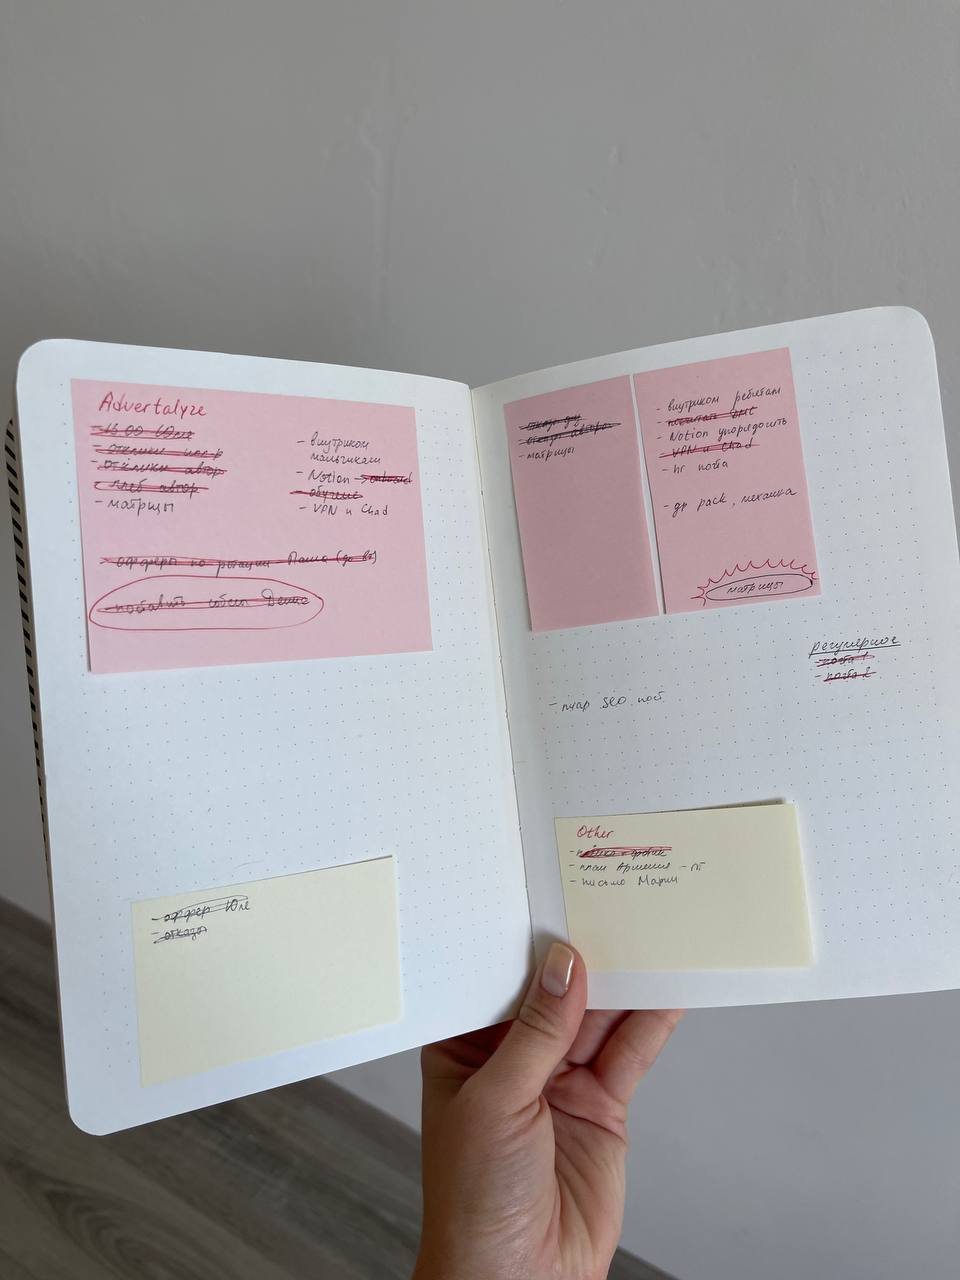 Advertalyze
- 13:00 Юле
- отклики
- отклики автор
- автор
- матрицы
- внутряком
мальчикам
- Notion → onboard
- обучение
- VPN и Chad
- офферы по ротации - Паша (до вт)
- поставить собес Денис
- оффер Юле
- отказы
- отказ
- отказ автора
- матрицы
- внутряком ребятам
- Notion упорядочить
- VPN и Chad
- hr
- др pack, механика
матрицы
регулярное
- 1
- 2
- пиар SEO пост
Other
- план Армения - пт
- письмо Марии